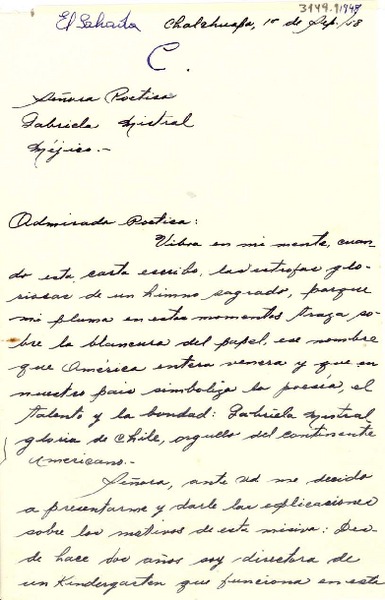 El Salvador Chalchuapa, 1º de Sep./48
3149.11948
C.
Señora Poetisa
Gabriela Mistral
Méjico.-
Admirada Poetisa:
Vibra en mi mente, cuan-
do esta carta escribo, las estrofas glo-
riosas de un himno sagrado, porque
mi pluma en estos momentos traza so-
bre la blancura del papel, ese nombre
que América entera venera y que en
nuestro país simboliza la poesía, el
talento y la bondad: Gabriela Mistral
gloria de Chile, orgullo del continente
americano.-
Señora, ante Ud me decido
a presentarme y darle las explicaciones
sobre los motivos de esta misiva: Des-
de hace dos años soy directora de
un Kindergarten que funciona en este